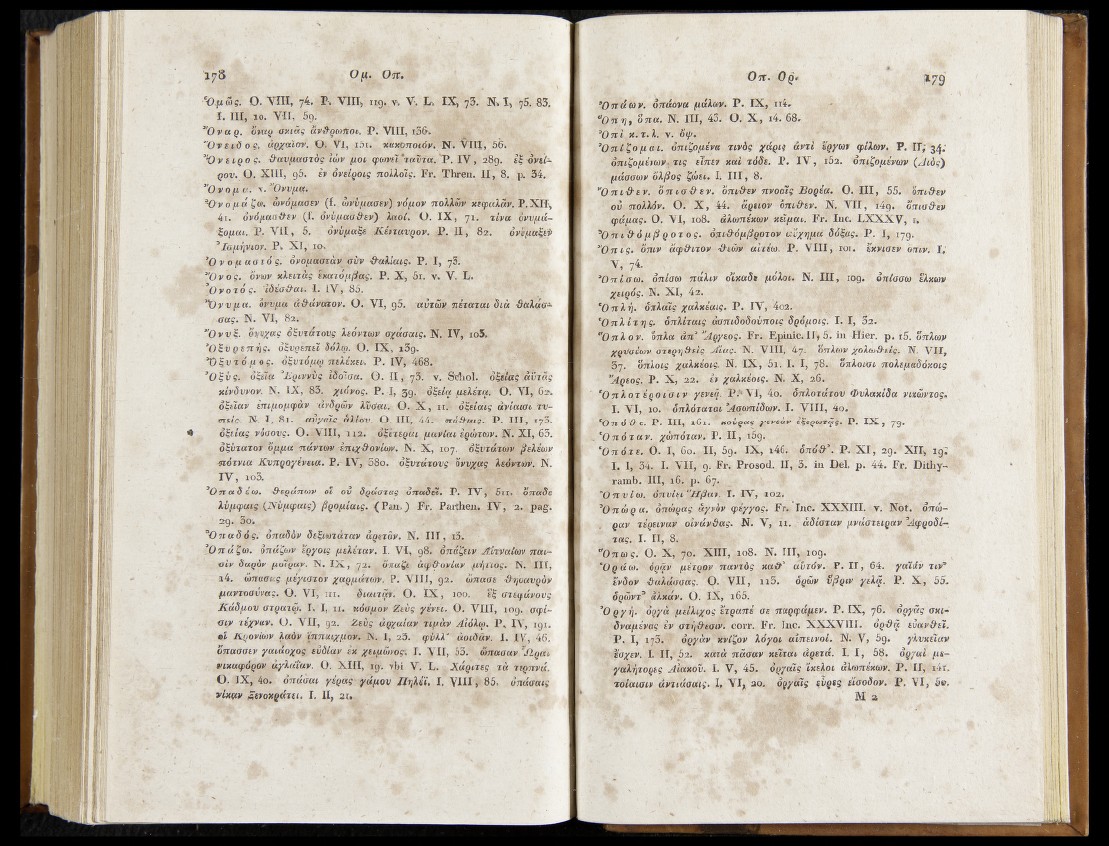 178 Ομ. Οπ.
Ὁμῶς. O. VIII, 74. P. VIII, 119. v. V. L. IX, 73. N. I, 75. 83.
I. III, 10. VII, 59.
Ὄναρ. ὄναρ σκιᾶς ἄνθρωποι. P. VIII, 136.
Ὄνειδος. ἀρχαῖον. O. VI, 151. κακοποιόν. N. VIII, 56.
Ὄνειρος. θαυμαστὸς ἰὼν μοι φωνεῖ ταῦτα. P. IV, 289. ἐξ ὀνεί-
ρου. O. XIII, 95. ἐν ὀνείροις πολλοῖς. Fr. Thren. II, 8. p. 34.
Ὄνομα. v. Ὄνυμα.
Ὀνομάζω. ὠνόμασεν (f. ὠνύμασεν) νόμον πολλῶν κεφαλᾶν. P. XII,
41. ὀνόμασθεν (f. ὀνύμασθεν) λαοί. O. IX, 71. τίνα ὀνυμά-
ξομαι. P. VII, 5. ὀνύμαξε Κένταυρον. P. II, 82. ὀνύμαξεν
Ἰσμήνιον. P. XI, 10.
Ὀνομαστός. ὀνομαστὰν σὺν θαλίαις. P. I, 73.
Ὄνος. ὄνων κλειτὰς ἑκατόμβας. P. X, 51. v. V. L.
Ὀνοτός. ἰδέσθαι. I. IV, 85.
Ὄνυμα. ὄνυμα ἀθάνατον. O. VI, 95. αὐτῶν πέταται διὰ θαλάσ-
σας. N. VI, 82.
Ὄνυξ. ὄνυχας ὀξυτάτους λεόντων σχάσαις. N. IV, 103.
Ὀξυρεπής. ὀξυρεπεῖ δόλῳ. O. IX, 139.
Ὀξυτόμος. ὀξυτόμῳ πελέκει. P. IV, 468.
Ὀξύς. ὀξεῖα Ἐριννὺς ἰδοῖσα. O. II, 73. v. Schol. ὀξείας ἀϋτᾶς
κίνδυνον. N. IX, 83. χιόνος. P. I, 39. ὀξείᾳ μελέτᾳ. O. VI, 62.
ὀξεῖαν ἐπιμομφὰν ἀνδρῶν λῦσαι. O. X, 11. ὀξείαις ἀνίαισι τυ-
πείς. N. I, 81. αὐγαῖς ἁλίου. O. III, 44. πάθαις. P. III, 173.
ὀξείας νόσους. O. VIII, 112. ὀξύτεραι μανίαι ἐρώτων. N. XI, 63.
ὀξύτατον ὄμμα πάντων ἐπιχθονίων. N. X, 107. ὀξυτάτων βελέων
πότνια Κυπρογένεια. P. IV, 380. ὀξυτάτους ὄνυχας λεόντων. N.
IV, 103.
Ὀπαδέω. θεράπων οἱ οὐ δράστας ὀπαδεῖ. P. IV, 511. ὀπαδε
λύμφαις (Νύμφαις) βρομίαις. (Pan.) Fr. Parthen. IV, 2. pag.
29. 30.
Ὀπαδός. ὀπαδὸν δεξιωτάταν ἀρετᾶν. N. III, 13.
Ὀπάζω. ὀπάζων ἔργοις μελέταν. I. VI, 98. ὀπάζειν Αἰτναίων παι-
σὶν δαρὸν μοῖραν. N. IX, 72. ὄπαζε ἀφθονίαν μήτιος. N. III,
14. ὤπασας μέγιστον χαρμάτων. P. VIII, 92. ὤπασε θησαυρὸν
μαντοσύνας. O. VI, 111. δίαιταν. O. IX, 100. ἐξ στεφάνους
Κάδμου στρατῷ. I. I, 11. κόσμον Ζεὺς γένει. O. VIII, 109. σφί-
σιν τέχναν. O. VII, 92. Ζεὺς ἀρχαίαν τιμὰν Αἰόλῳ. P. IV, 191.
οἱ Κρονίων λαὸν ἵππαιχμον. N. I, 23. φύλλʼ ἀοιδᾶν. I. IV, 46.
ὄπασσεν γαιάοχος εὐδίαν ἐκ χειμῶνος. I. VII, 53. ὤπασαν Ὧραι
νικαφόρον ἀγλαΐαν. O. XIII, 19. vbi V. L. Χάριτες τὰ τερπνά.
O. IX, 40. ὀπάσαι γέρας γάμου Πηλέϊ. I. VIII, 85. ὀπάσαις
νίκαν Ξενοκράτει. I. II, 21.
Οπ. Ορ. 179
Ὀπάων. ὀπάονα μάλων. P. IX, 114.
Ὀπῃ, ὅπα. N. III, 43. O. X, 14. 68.
Ὀπὶ κ.τ.λ. v. ὄψ.
Ὀπίζομαι. ὀπιζομένα τινὸς χάρις ἀντὶ ἔργων φίλων. P. II, 34.
ὀπιζομένων τις εἶπεν καὶ τόδε. P. IV, 152. ὀπιζομένων (Διὸς)
μάσσων ὄλβος ζώει. I. III, 8.
Ὄπιθεν. ὄπισθεν. ὄπιθεν πνοαῖς Βορέα. O. III, 55. ὄπιθεν
οὐ πολλόν. O. X, 44. ἄρειον ὄπιθεν. N. VII, 149. ὄπισθεν
φάμας. O. VI, 108. ἀλωπέκων κεῖμαι. Fr. Inc. LXXXV, 1.
Ὀπιθόμβροτος. ὀπιθόμβροτον αὔχημα δόξας. P. I, 179.
Ὄπις. ὄπιν ἄφθιτον θεῶν αἰτέω. P. VIII, 101. ἔκνισεν ὄπιν. I.
V, 74.
Ὀπίσω. ὀπίσω πάλιν οἴκαδε μόλοι. N. III, 109. ὀπίσσω ἕλκων
χειρός. N. XI, 42.
Ὁπλή. ὁπλαῖς χαλκέαις. P. IV, 402.
Ὁπλίτης. ὁπλίταις ἀσπιδοδούποις δρόμοις. I. I, 32.
Ὅπλον. ὅπλα ἀπʼ Ἄργεος. Fr. Epinic. II, 5. in Hier. p. 15. ὅπλων
χρυσέων στερηθεὶς Αἴας. N. VIII, 47. ὅπλων χολωθείς. N. VII,
37. ὅπλοις χαλκέοις. N. IX, 51. I. I, 78. ὅπλοισι πολεμαδόκοις
Ἄρεος. P. X, 22. ἐν χαλκέοις. N. X, 26.
Ὁπλοτέροισιν γενεῇ. P. VI, 40. ὁπλοτάτου Φυλακίδα νικῶντος.
I. VI, 10. ὁπλότατοι Ἀσωπίδων. I. VIII, 40.
Ὁπόθε. P. III, 161. κούρας γενεὰν ἐξερωτᾷς. P. IX, 79.
Ὁπόταν. χὠπόταν. P. II, 159.
Ὁπότε. O. I, 60. II, 59. IX, 146. ὁπόθʼ. P. XI, 29. XII, 19.
I. I, 34. I. VII, 9. Fr. Prosod. II, 3. in Del. p. 44. Fr. Dithy-
ramb. III, 16. p. 67.
Ὀπυίω. ὀπυίει Ἥβαν. I. IV, 102.
Ὀπώρα. ὀπώρας ἁγνὸν φέγγος. Fr. Inc. XXXIII. v. Not. ὀπώ-
ραν τέρειναν οἰνάνθας. N. V, 11. ἁδίσταν μνάστειραν Ἀφροδί-
τας. I. II, 8.
Ὅπως. O. X, 70. XIII, 108. N. III, 109.
Ὁράω. ὁρᾶν μέτρον παντὸς καθʼ αὑτόν. P. II, 64. γαῖάν τινʼ
ἔνδον θαλάσσας. O. VII, 113. ὁρῶν ὕβριν γελᾷ. P. X, 55.
ὁρῶντʼ ἀλκάν. O. IX, 165.
Ὀργή. ὀργὰ μείλιχος ἔτραπέ σε παρφάμεν. P. IX, 76. ὀργᾶς σκι-
δναμένας ἐν στήθεσιν. corr. Fr. Inc. XXXVIII. ὀργᾷ εὐανθεῖ.
P. I, 173. ὀργὰν κνίζον λόγοι αἰπεινοί. N. V, 59. γλυκεῖαν
ἔσχεν. I. II, 52. κατὰ πᾶσαν κεῖται ἀρετά. I. I, 58. ὀργαὶ με-
γαλήτορες Αἰακοῦ. I. V, 45. ὀργαῖς ἴκελοι ἀλωπέκων. P. II, 141.
τοίαισιν ἀντιάσαις. I. VI, 20. ὀργαῖς εὗρες εἴσοδον. P. VI, 50.
M 2